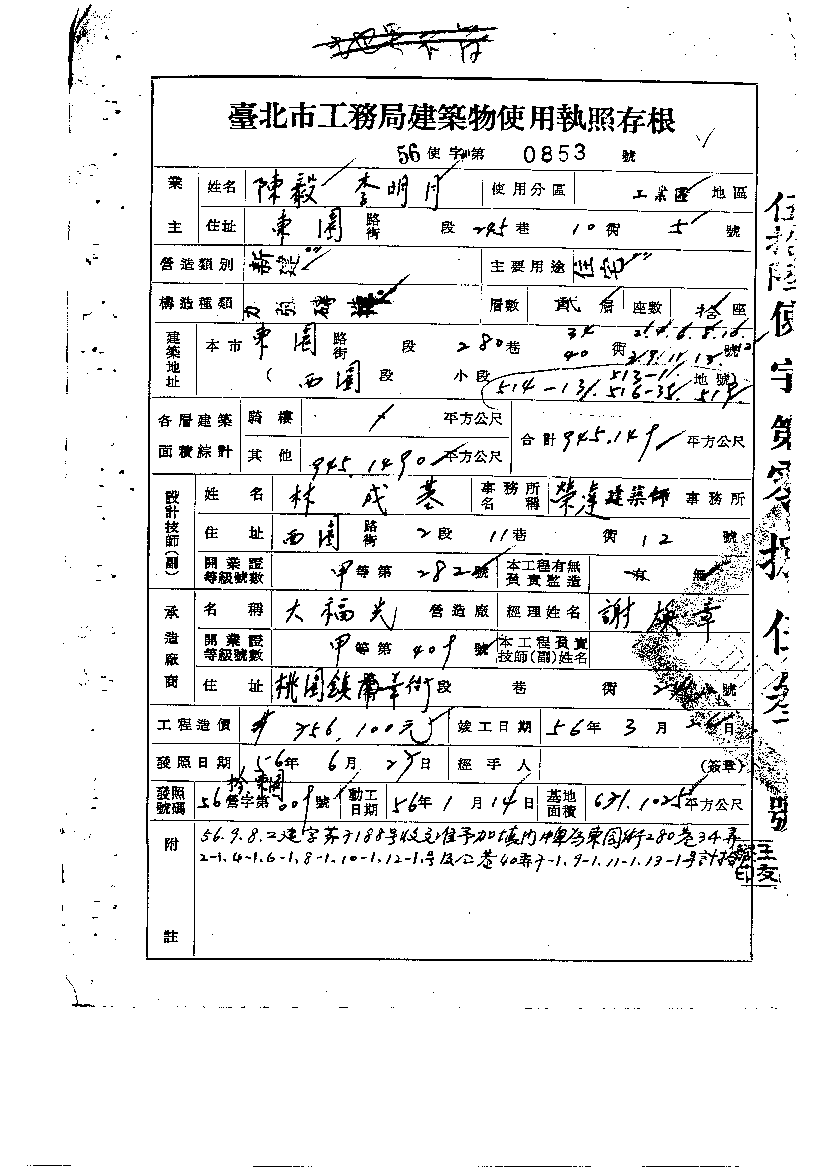 臺北市工務局建築物使用執照存根
56使字第 0853 號
業主 姓名 陳毅 李明月 使用分區 工業區 地區
住址 東園 路街 段 245巷 10衖 5號
營造類別 新建 主要用途 住宅
構造種類 加強磚造 層數 貳層 座數 拾座
建築地址 本市 東園 路街 段 280巷 34 40 衖 號
( 西園 段 小段 514-13 513-1 516-35 519 地號)
各層建築面積綜計 騎樓 平方公尺 合計 945.149 平方公尺
其他 945.1490 平方公尺
設計技師(副) 姓名 林成基 事務所名稱 榮達建築師 事務所
住址 西園 路街 2段 11巷 衖 12號
開業證等級號數 甲等第 282號 本工程有無負責監造 有 無
承造廠商 名稱 大福光 營造廠 經理姓名 謝 章
開業證等級號數 甲等第 409號 本工程負責技師(副)姓名
住址 桃園鎮 華街 段 巷 衖 號
工程造價 756,100元 竣工日期 56年 3月 日
發照日期 56年 6月 29日 經手人 (簽章)
發照號碼 56營字第 009號 動工日期 56年 1月 14日 基地面積 631.1025 平方公尺
附註 56.9.8.二建字第 188號收文准予加填門牌為東園街280巷34弄
2-1.4-1.6-1.8-1.10-1.12-1.號及 巷40弄7-1.9-1.11-1.13-1號計拾
王友 印
伍拾陸使字第零捌伍叁號